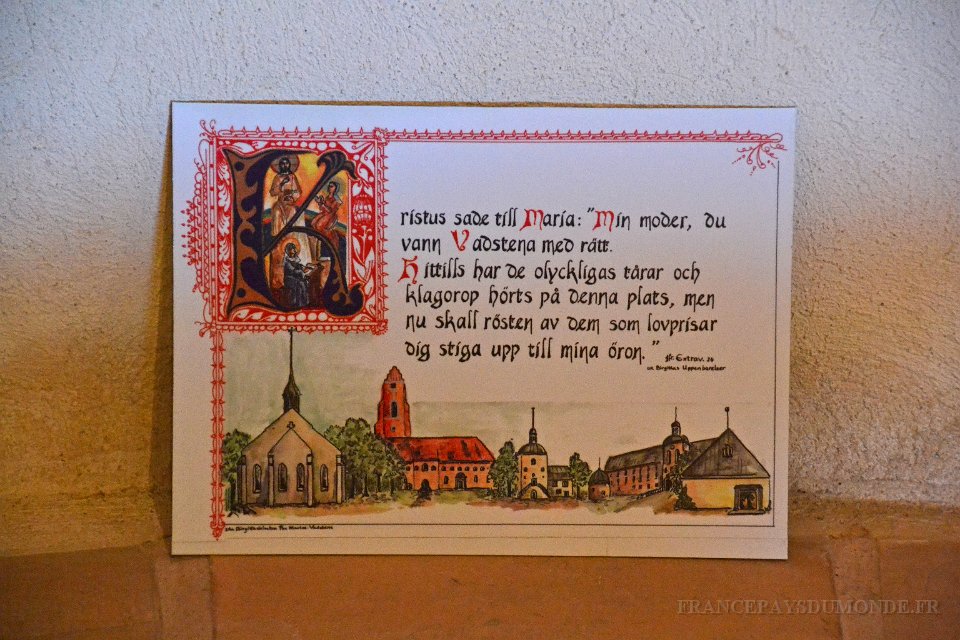 Kristus sade till Maria: "Min moder, du
vann Vadstena med rätt.
Hittills har de olyckligas tårar och
klagorop hörts på denna plats, men
nu skall rösten av dem som lovprisar
dig stiga upp till mina öron."
fr. Extrav. 24
ur Birgittas Uppenbarelser
FRANCEPAYSDUMONDE.FR